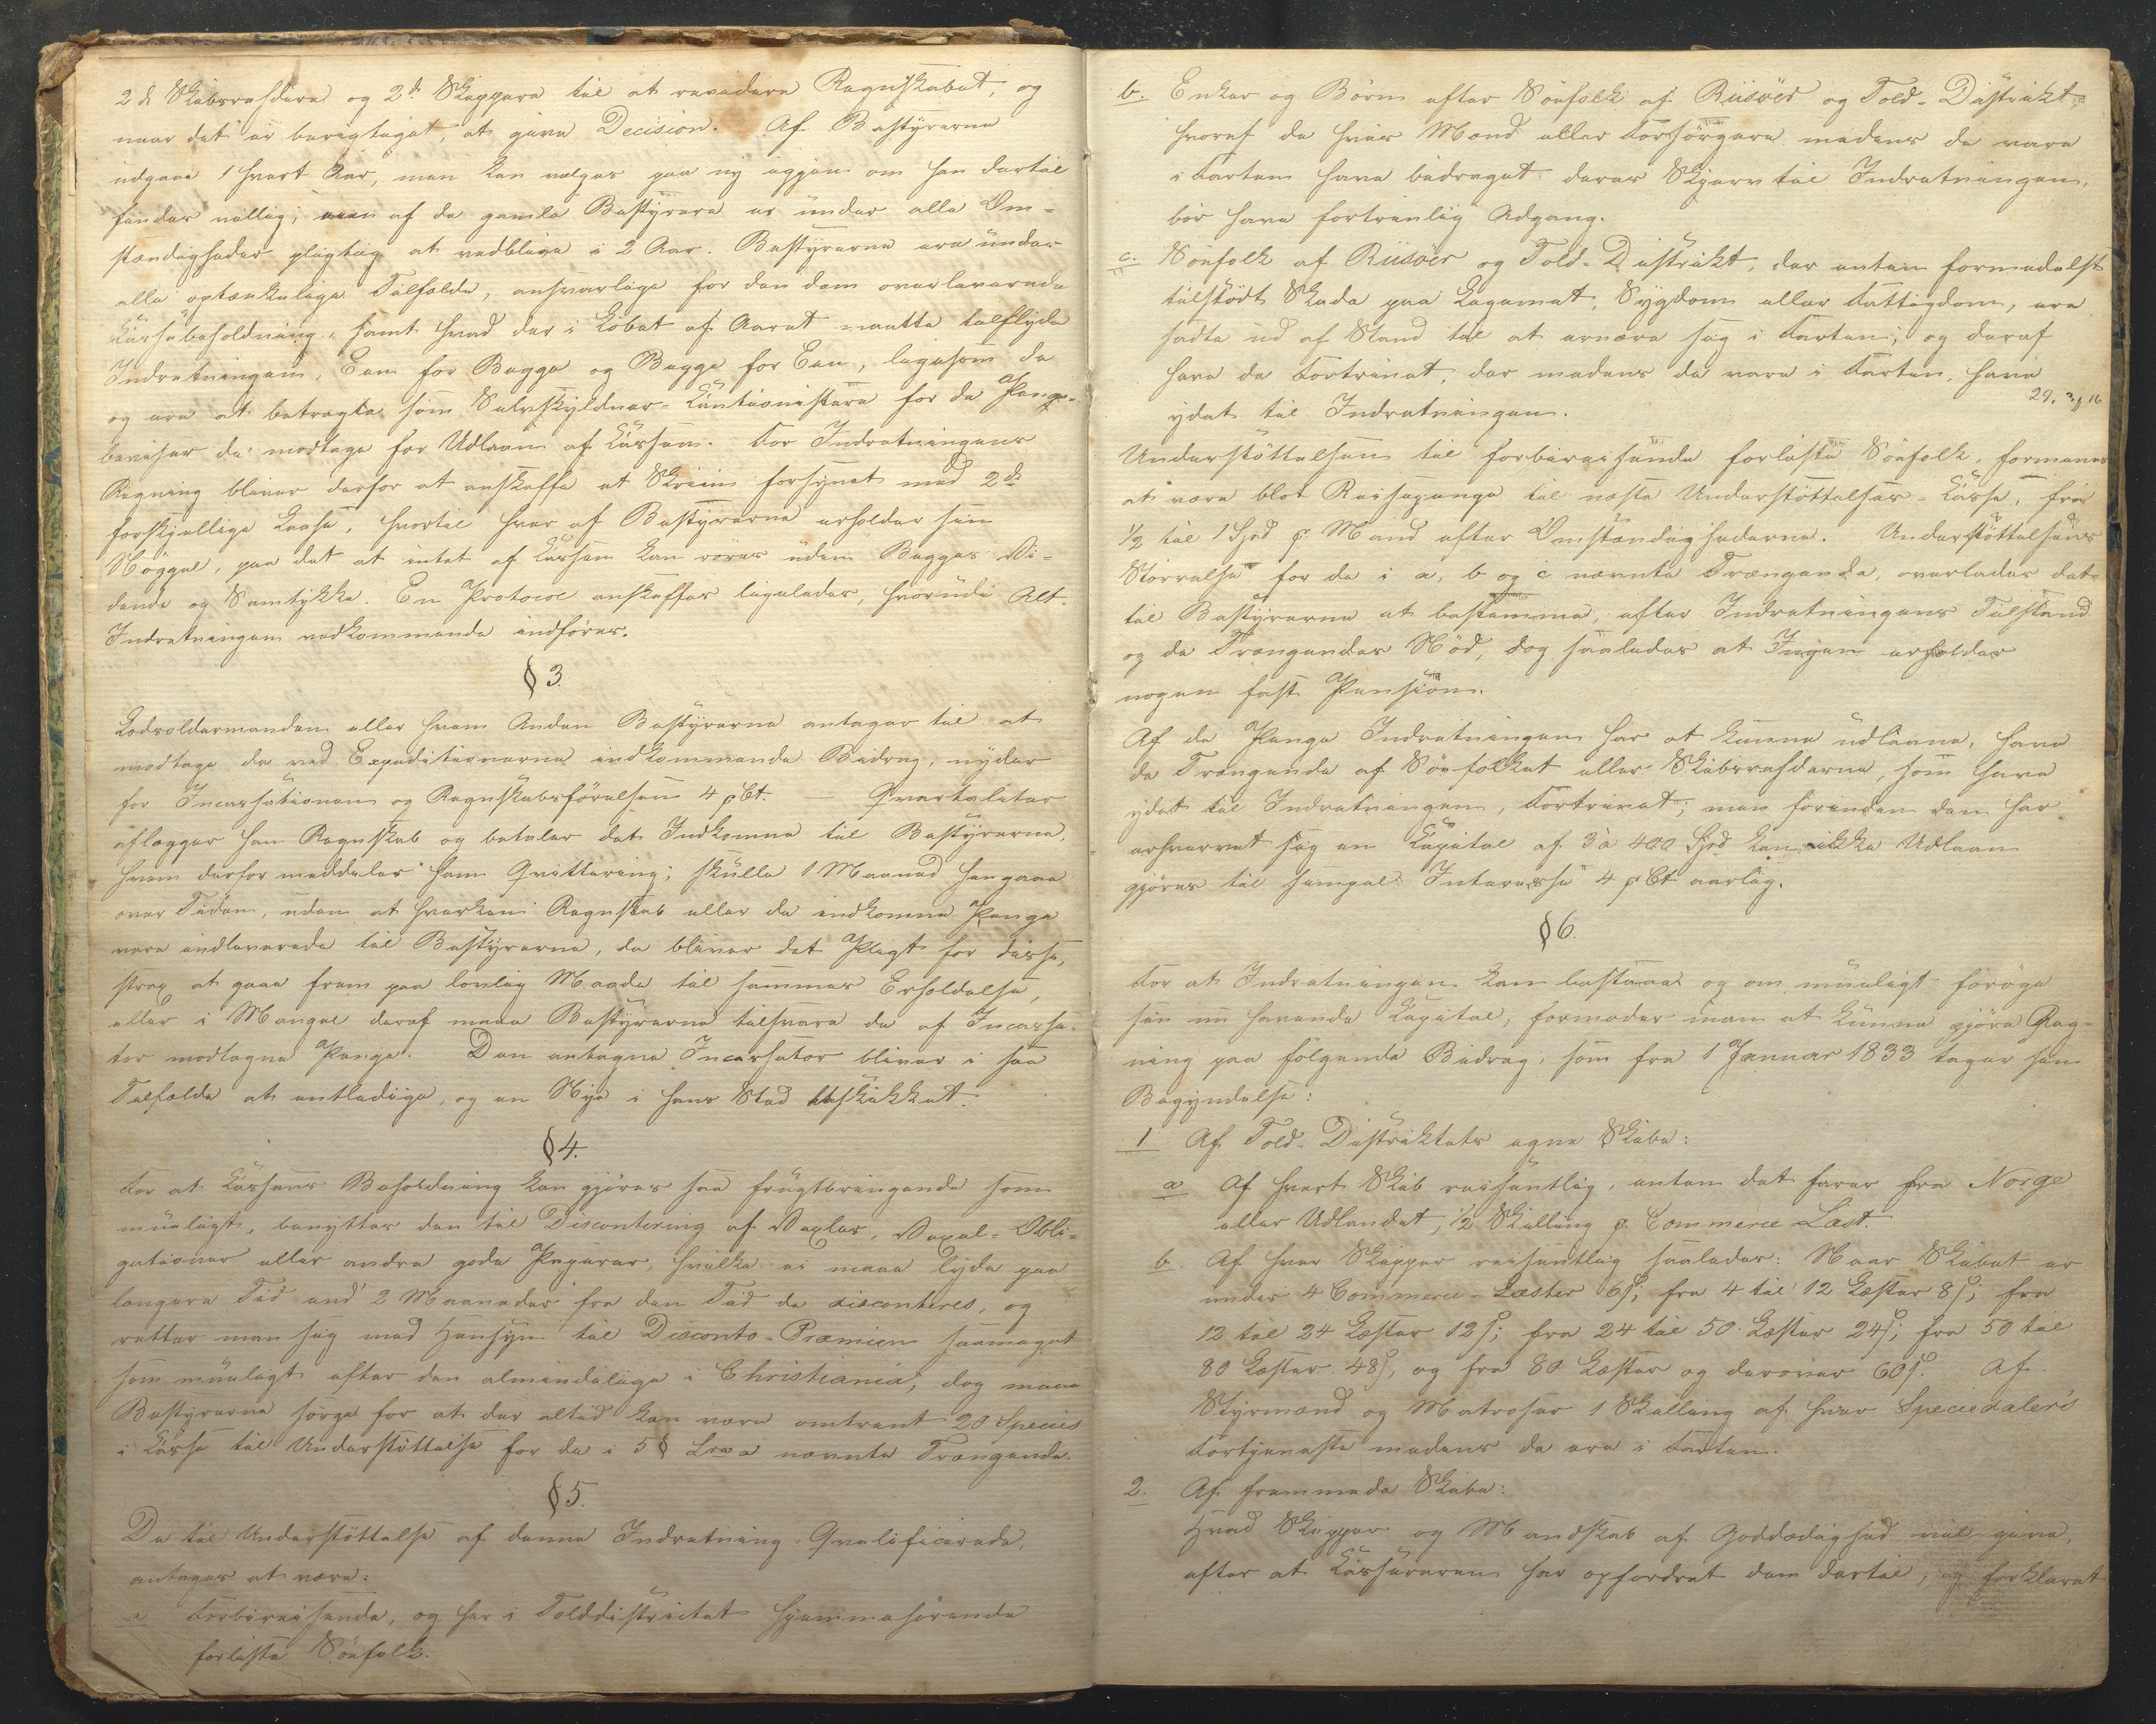 2de Skibsrehdere og 2de Skippere til at revidere Regnskabet, og
naar det er berigtiget, at give Decision. Af Bestyrerne
udgaae 1 hvert Aar, men kan vælges paa ny igjen om han dertil
findes villig; men af de gamle Bestyrere er under alle Om-
stændigheder pligtig at vedblive i 2 Aar. Bestyrerne ere under
alle optænkelige Tilfælde, ansvarlige for den dem overleverede
Cassebeholdning, samt hvad der i Løbet af Aaret maatte tilflyde
Indretningen, Een for Begge og Begge for Een, ligesom de
og ere at betragte som Selvskyldner-Cautionister for de Pange-
beviser de modtage for Udlaan af Cassen. For Indretningens
Regning bliver derfor at anskaffe et Skriin forsynet med 2de
forskjellige Laase, hvortil hver af Bestyrerne erholder sin
Nøggel, paa det at intet af Cassen kan røres uden Begges Vi-
dende og Samtykke. En Protocol anskaffes ligeledes, hvorudi Alt
Indretningen vedkommende indføres.
§ 3.
Lodsoldermanden eller hvem Anden Bestyrerne antager til at
modtage de ved Expeditionerne indkommende Bidrag, nyder
for Incassationen og Regnskabsførelsen 4 pCt. — Qvartaliter
aflægger han Regnskab og betaler det Indkomne til Bestyrerne,
hvem derfor meddeler ham Qvittering; skulle 1 Maaned hengaae
over Tiden, uden at hverken Regnskab eller de indkomne Penge
vare indleverede til Bestyrerne, da bliver det Pligt for disse,
strax at gaae frem paa lovlig Maade til sammes Erholdelse,
eller i Mangel deraf maae Bestyrerne tilsvare de af Incassa-
tor modtagne Penge. Den antagne Incassator bliver i saa
Tilfælde at entledige, og en Nye i hans Sted beskikket.
§ 4.
For at Cassens Beholdning kan gjøres saa frugtbringende som
mueligt, benyttes den til Discontering af Vexler, Vexel-Obli-
gationer eller andre gode Papirer, hvilke ei maae lyde paa
længere Tid end 2 Maaneder fra den Tid de disconteres, og
retter man sig med Hensyn til Disconto-Præmien saameget
som mueligt efter den almindelige i Christiania; dog maae
Bestyrerne sørge for at der altid kan være omtrent 20 Species
i Casse til Understøttelse for de i 5 § Lra a nævnte Trængende.
§ 5.
De til Understøttelse af denne Indretning Qvalificerede,
antages at være:
a Forbireisende, og her i Tolddistrictet hjemmehørende
forliste Søefolk.
b. Enker og Børn efter Søefolk af Riisøer og Told-Distrikt,
hvoraf de hvis Mænd eller Forsørgere medens de vare
i Farten have bidraget deres Skjerv til Indretningen,
bør have fortrinlig Adgang.
c. Søefolk af Riisøer og Told-Distrikt, der enten formedelst
tilstødt Skade paa Legemet, Sygdom eller Fattigdom, ere
satte ud af Stand til at ernære sig i Farten; og deraf
have de Fortrinet, der medens de vare i Farten, have
ydet til Indretningen.
29. 3/4 16
Understøttelsen til forbireisende forliste Søefolk, formenes
at være blot Reisepenge til næste Understøttelses-Casse, fra
1/2 til 1 Spd p Mand efter Omstændighederne. Understøttelsens
Størrelse for de i a, b og c nævnte Trængende, overlades det
til Bestyrerne at bestemme, efter Indretningens Tilstand
og de Trængendes Nød, dog saaledes at Ingen erholder
nogen fast Pension.
Af de Penge Indretningen har at kunne udlaane, have
de Trængende af Søefolket eller Skibsrehderne, som have
ydet til Indretningen, Fortrinet; men førenden den har
erhvervet sig en Capital af 3 à 400 Spd kan ikke Udlaan
gjøres til simpel Interesse 4 pCt aarlig.
§ 6.
For at Indretningen kan bestaae og om mueligt forøge
sin nu havende Capital, formoder man at kunne gjøre Reg-
ning paa følgende Bidrag, som fra 1 Januar 1833 tager sin
Begyndelse:
1 Af Told-Distriktets egne Skibe:
a Af hvert Skib reisentlig, enten det farer fra Norge
eller Udlandet, 1/2 Skilling p. Commerce-Læst.
b. Af hver Skipper reisentlig saaledes: Naar Skibet er
under 4 Commerce-Læster 6ß; fra 4 til 12 Læster 8ß; fra
12 til 24 Læster 12ß; fra 24 til 50 Læster 24ß; fra 50 til
80 Læster 48ß, og fra 80 Læster og derover 60ß. Af
Styrmænd og Matroser 1 Skilling af hver Speciedaler's
Fortjeneste medens de ere i Farten.
2. Af fremmede Skibe:
Hvad Skipper og Mandskab af Goddædighed vil give,
efter at Cassereren har opfordret dem dertil, og forklaret